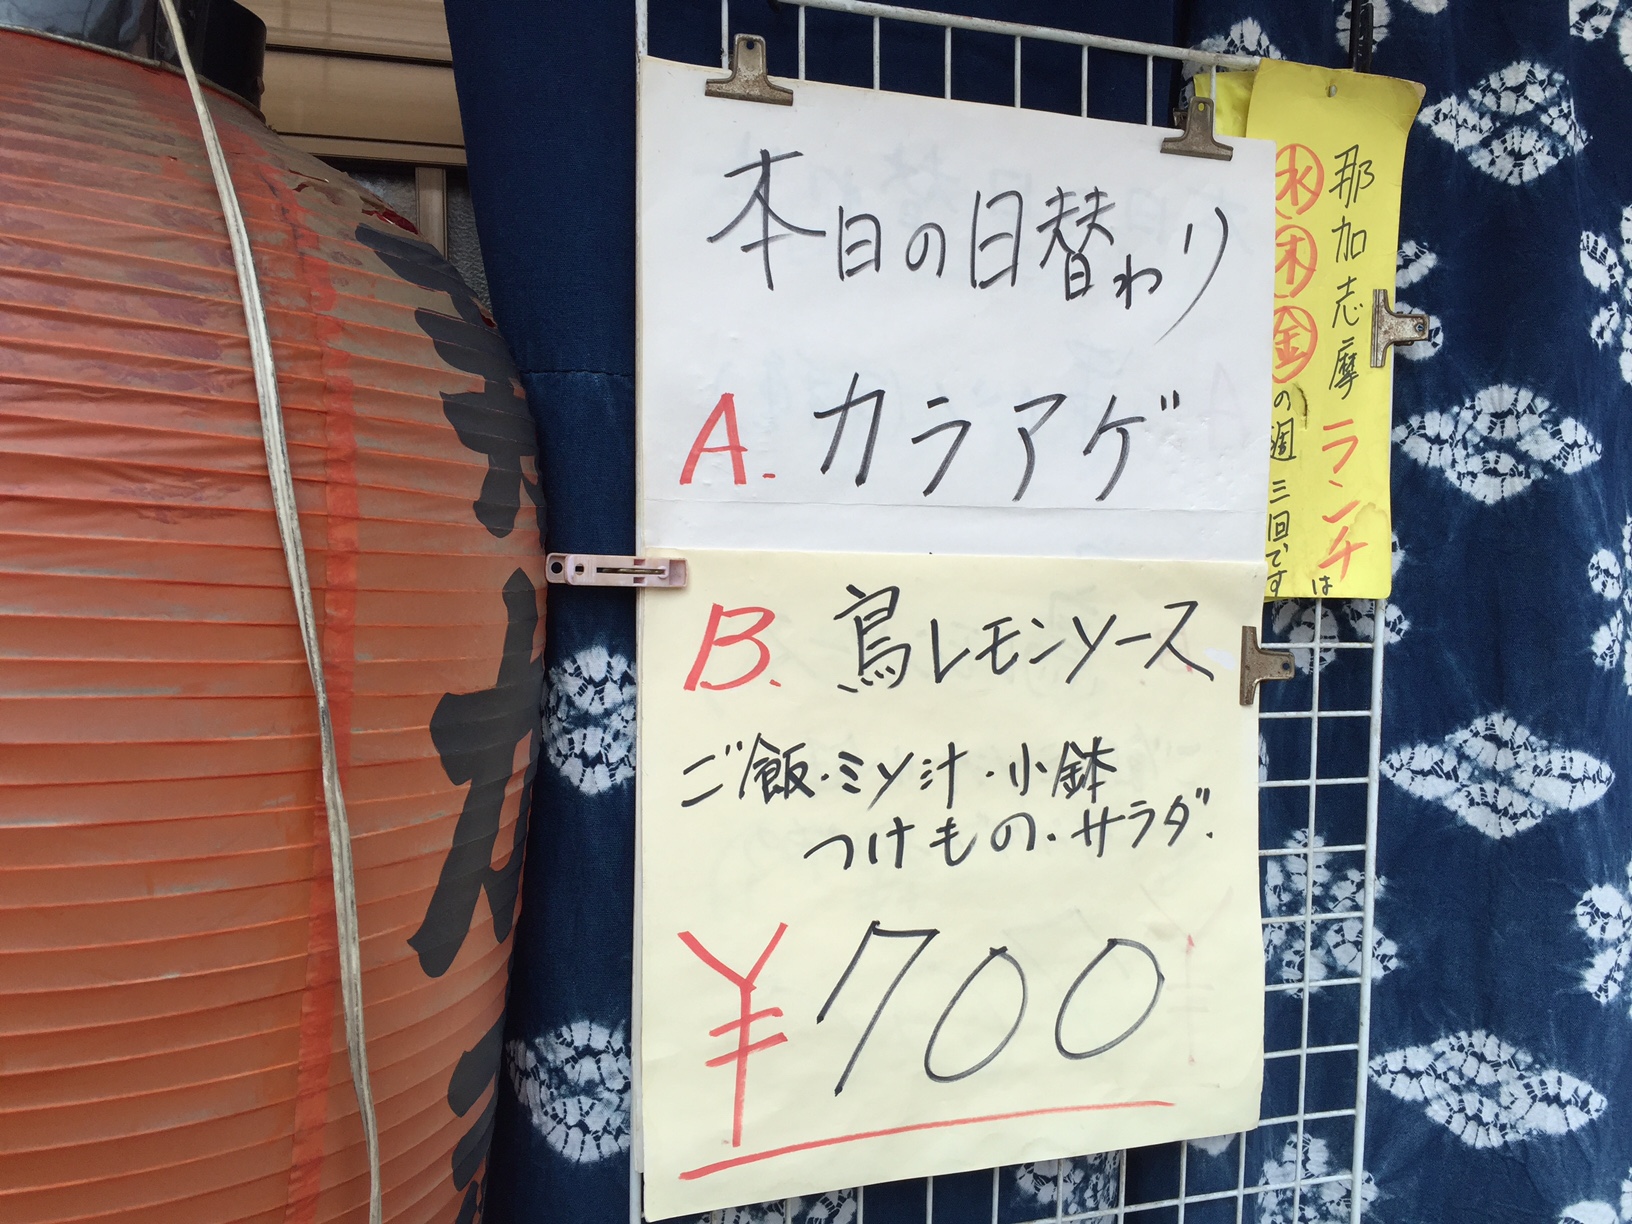 本日の日替わり
A. カラアゲ
B. 鳥レモンソース
ご飯・ミソ汁・小鉢
つけもの・サラダ.
¥700
那加志摩ランチは
水木金の週三回です